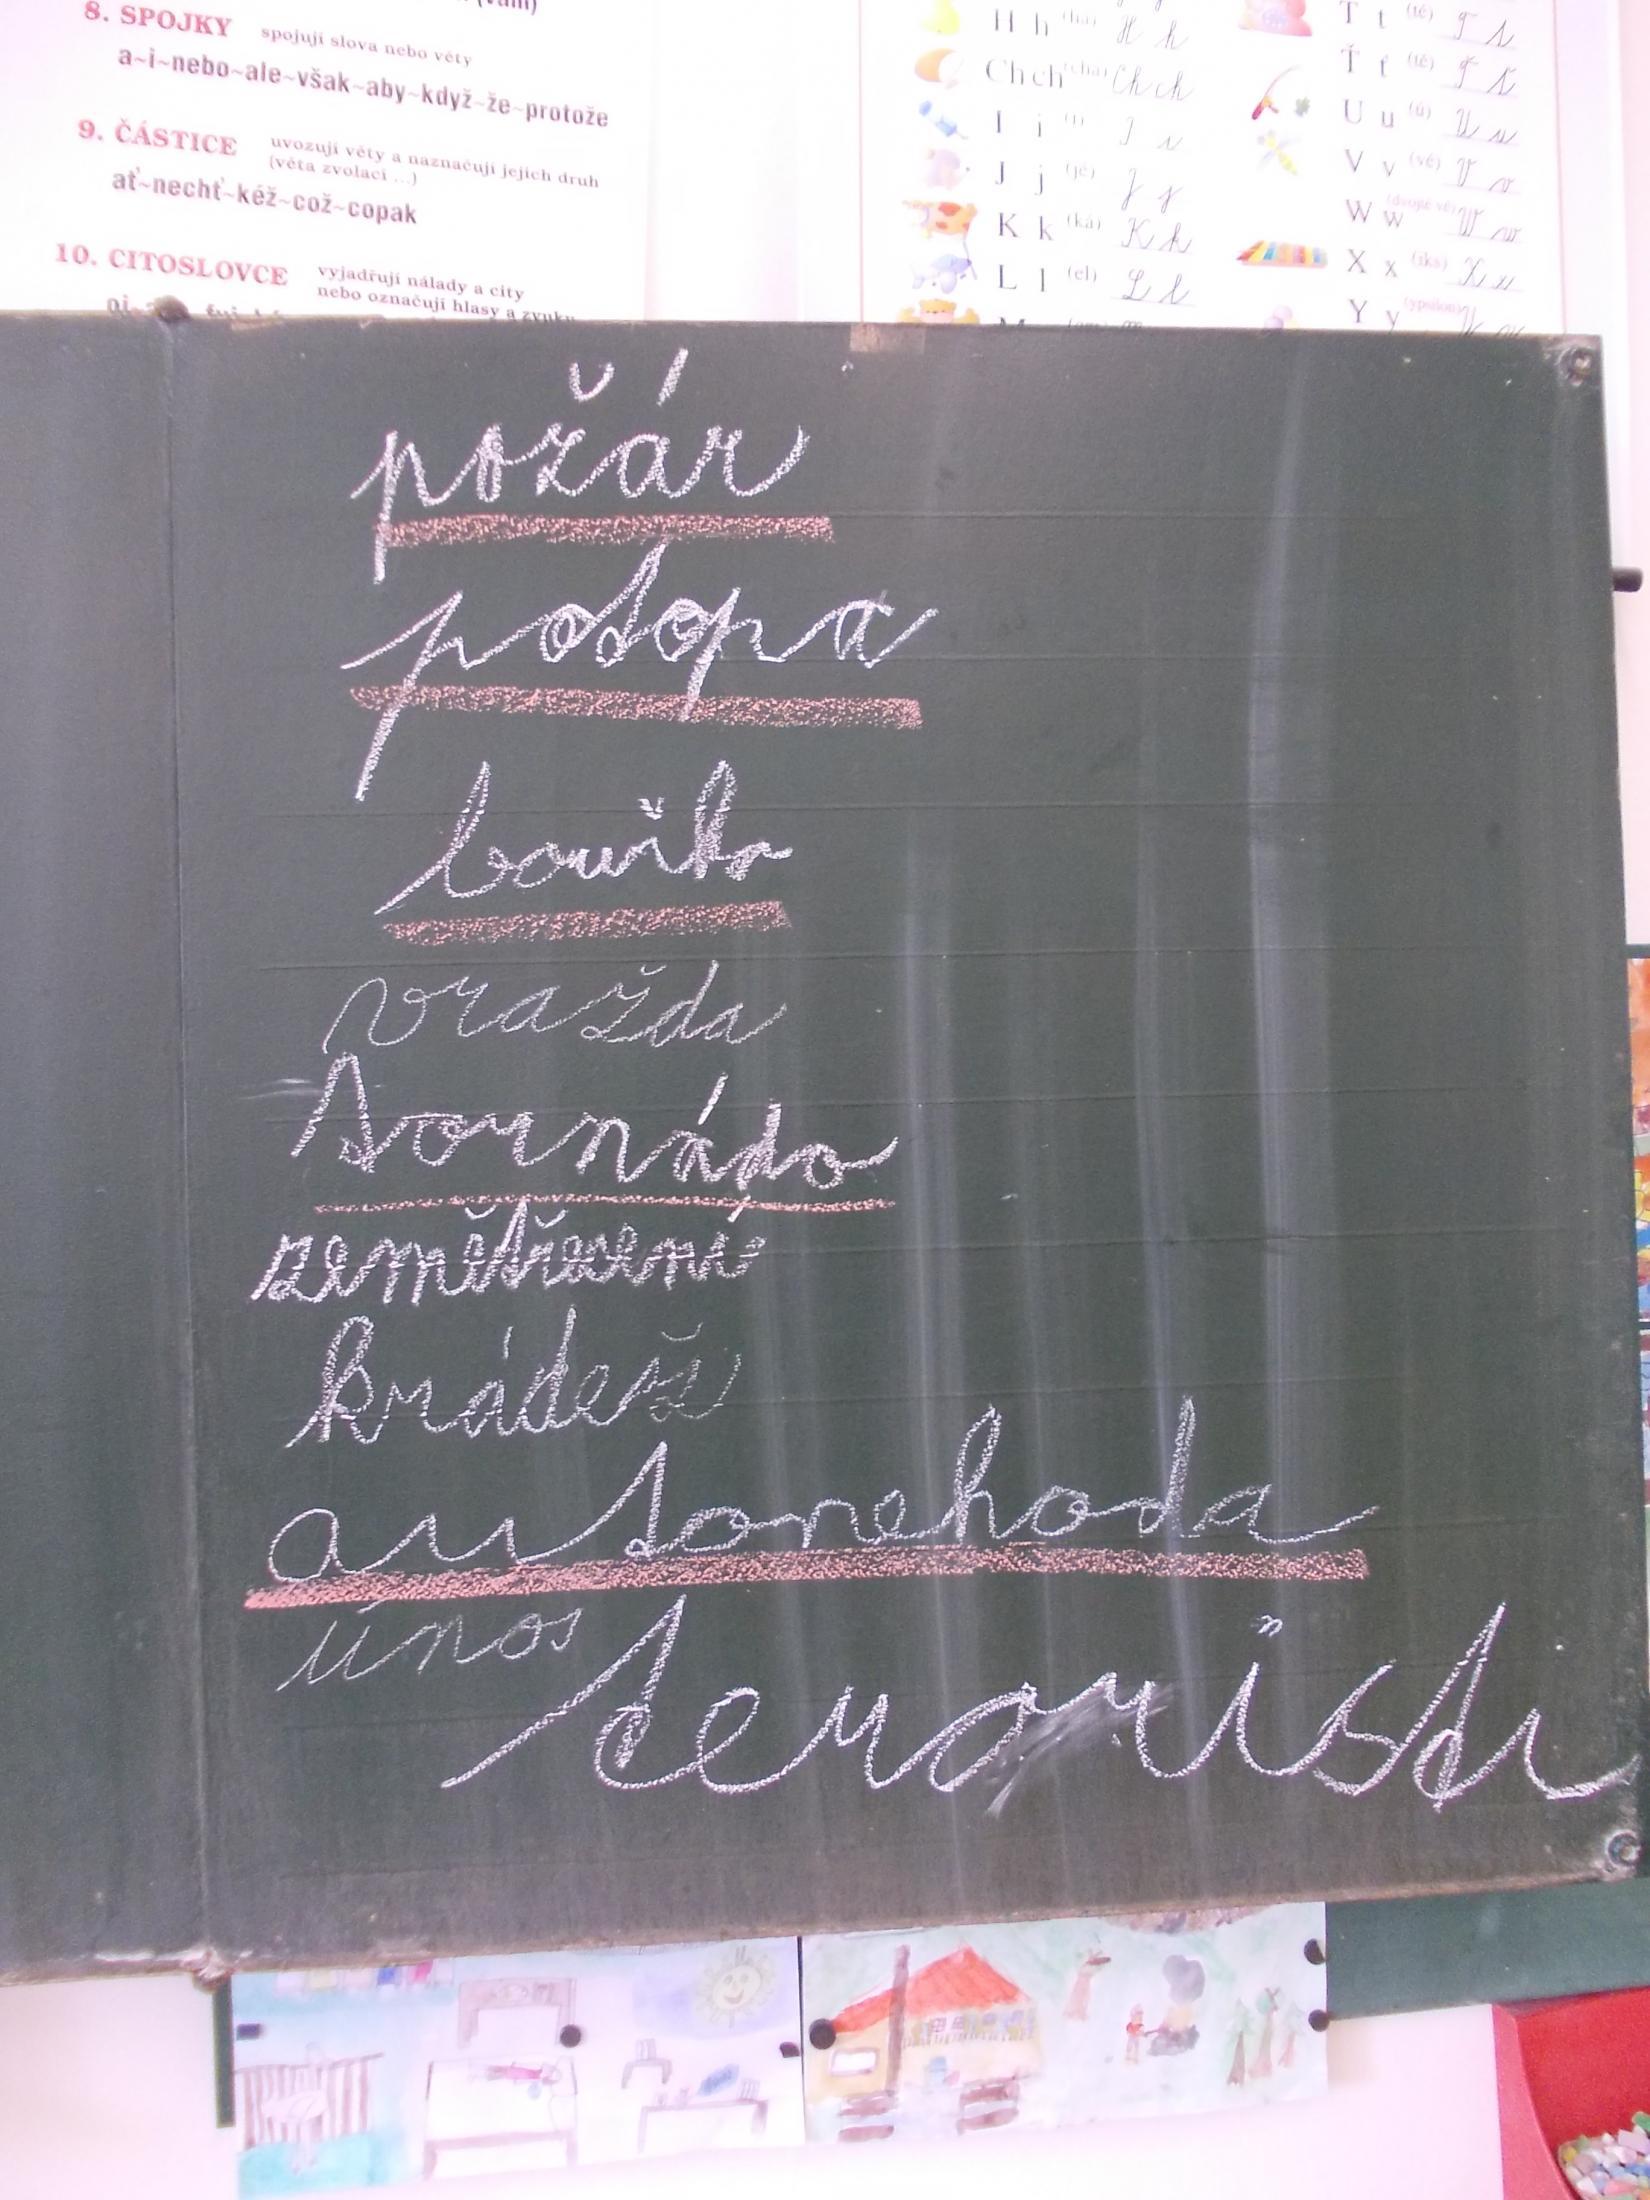 8. SPOJKY spojují slova nebo věty
a~i~nebo~ale~však~aby~když~že~protože
9. ČÁSTICE uvozují věty a naznačují jejich druh
(věta zvolací ...)
ať~nechť~kéž~což~copak
10. CITOSLOVCE vyjadřují nálady a city
nebo označují hlasy a zvuky
H h (há) H h
Ch ch (cha) Ch ch
I i (í) I i
J j (jé) J j
K k (ká) K k
L l (el) L l
T t (té) T t
Ť ť (tě) Ť ť
U u (ú) U u
V v (vé) V v
W w (dvojté vé) W w
X x (iks) X x
Y y (ypsilon) Y y
požár
potopa
bouřka
vražda
tornádo
zemětřesení
krádež
autonehoda
únos
teroristi